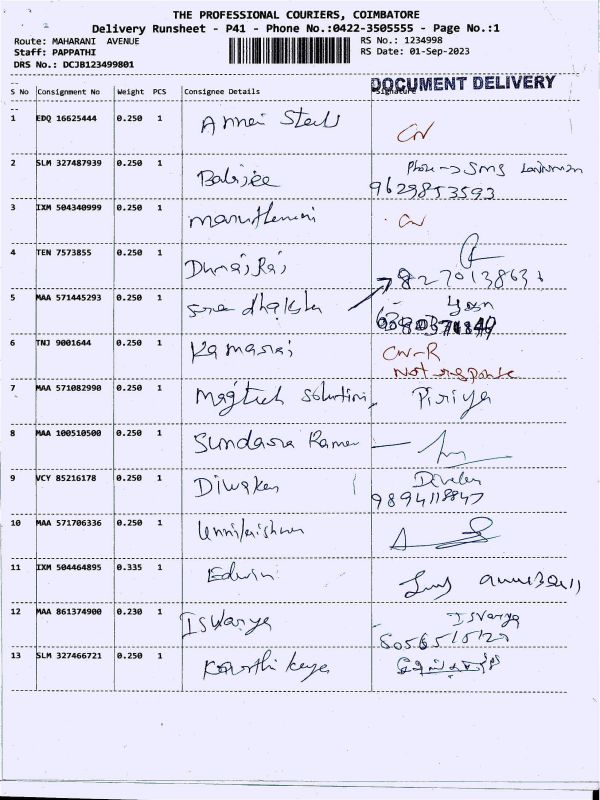 THE PROFESSIONAL COURIERS, COIMBATORE
Delivery Runsheet - P41 - Phone No.:0422-3505555 - Page No.:1
Route: MAHARANI AVENUE
RS No.: 1234998
Staff: PAPPATHI
RS Date: 01-Sep-2023
DRS No.: DCJB123499801
DOCUMENT DELIVERY
S No Consignment No Weight PCS Consignee Details Signature
1 EDQ 16625444 0.250 1 Annai Steels
CN
2 SLM 327487939 0.250 1 Balajee
Phone → SMS
9629853593
3 IXM 504340999 0.250 1
CN
4 TEN 7573855 0.250 1 Dhnaj Raj
5 MAA 571445293 0.250 1 Sree dhaksha
6 TNJ 9001644 0.250 1 Kamaraj
CN-R
Not response
7 MAA 571082990 0.250 1 Magtech Solutions
Piriya
8 MAA 100510500 0.250 1 Sundara Raman
9 VCY 85216178 0.250 1 Diwakar
9894118847
10 MAA 571706336 0.250 1 Unnikrishnan
11 IXM 504464895 0.335 1 Edwin
12 MAA 861374900 0.230 1 Iswarya
Iswarya
13 SLM 327466721 0.250 1 Karthikeya